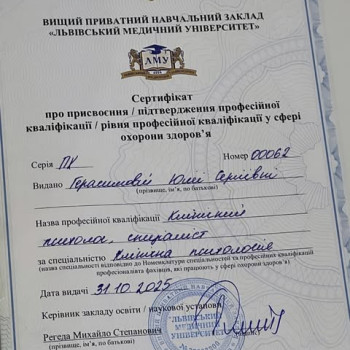 ВИЩИЙ ПРИВАТНИЙ НАВЧАЛЬНИЙ ЗАКЛАД
«ЛЬВІВСЬКИЙ МЕДИЧНИЙ УНІВЕРСИТЕТ»
ЛМУ
Сертифікат
про присвоєння / підтвердження професійної
кваліфікації / рівня професійної кваліфікації у сфері
охорони здоров'я
Серія ПК Номер 00062
Видано Герасимовій Юлії Сергіївні
(прізвище, ім'я, по батькові)
Назва професійної кваліфікації Клінічний
психолог, спеціаліст
за спеціальністю Клінічна психологія
(назва спеціальності відповідно до Номенклатури спеціальностей та професійних кваліфікацій
професіоналів та фахівців, які працюють у сфері охорони здоров'я)
Дата видачі 31.10.2025
Керівник закладу освіти / наукової установи
Регеда Михайло Степанович
(прізвище, ім'я, по батькові)
ЛЬВІВСЬКИЙ
МЕДИЧНИЙ
УНІВЕРСИТЕТ